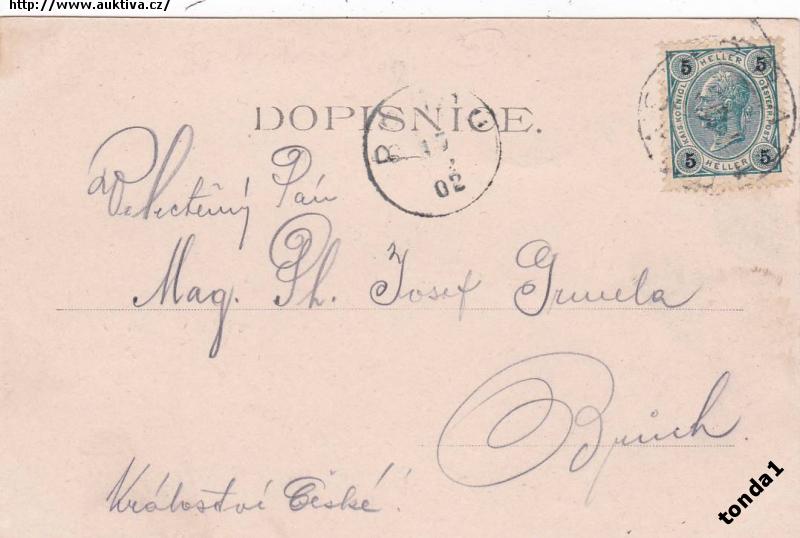 http://www.auktiva.cz/
5 HELLER 5
KAIS. KOENIGL. OESTERR. POST.
5 HELLER 5
DOPISNICE.
17
02
Velectěný Pán
Mag. Ph. Josef
Brüch.
Království České
tonda1